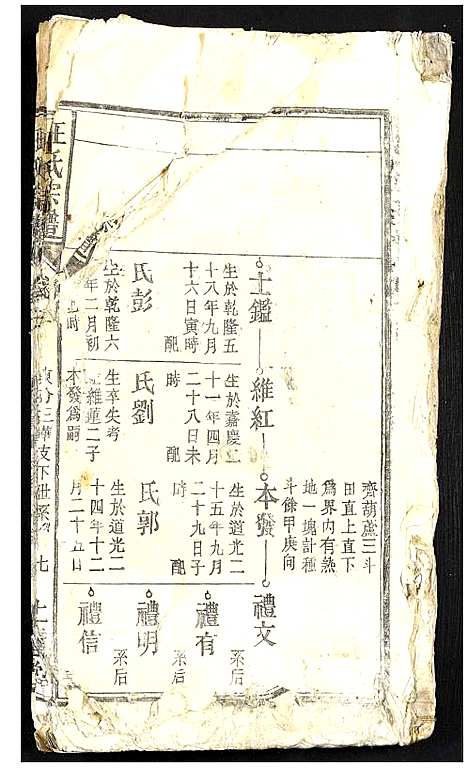 齊葫蘆三斗
田直上直下
爲界內有熱
地一塊計種
斗餘甲庚向
士鑑
生於乾隆五
十八年九月
十六日寅時
配
彭氏
生於乾隆六
年二月初
時
維紅
生於嘉慶二
十一年四月
二十八日未
時 配
劉氏
生卒失考
維蓮二子
本發爲嗣
本發
生於道光二
十五年九月
二十九日子
時 配
郭氏
生於道光二
十四年十二
月二十五日
禮文
系后
禮有
系后
禮明
系后
禮信
汪氏宗譜
七